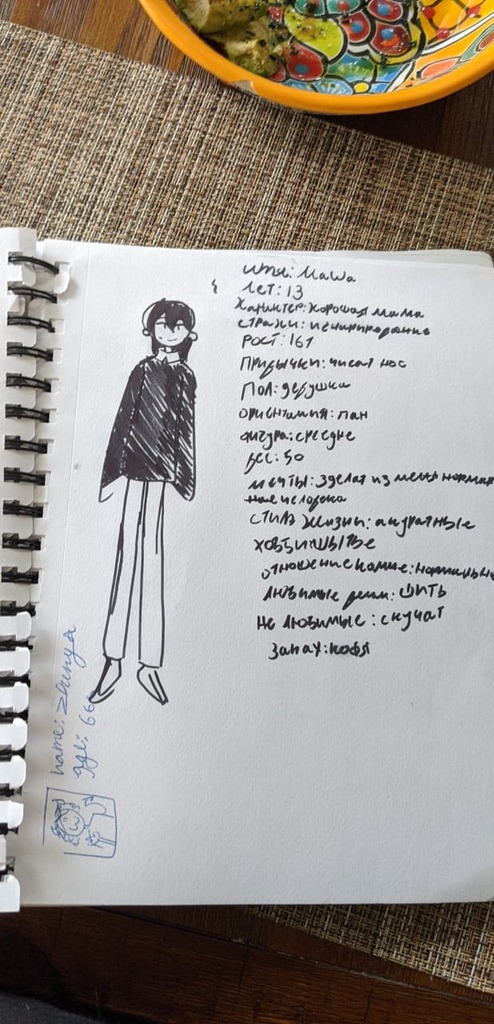 имя: Маша
лет: 13
характер: хорошая мама
РОСТ: 161
Привычки: чисат нос
Пол: девушка
ориентация: пан
фигура: средне
вес: 50
мечты: зделат из меня нормал
ное человека
СТИЛЬ жизни: акуратные
хобби: шытье
отношение ко мне: нормальное
любимые: ШИТЬ
не любимые: скучат
запах: кофя
name: zhenya
age: 666